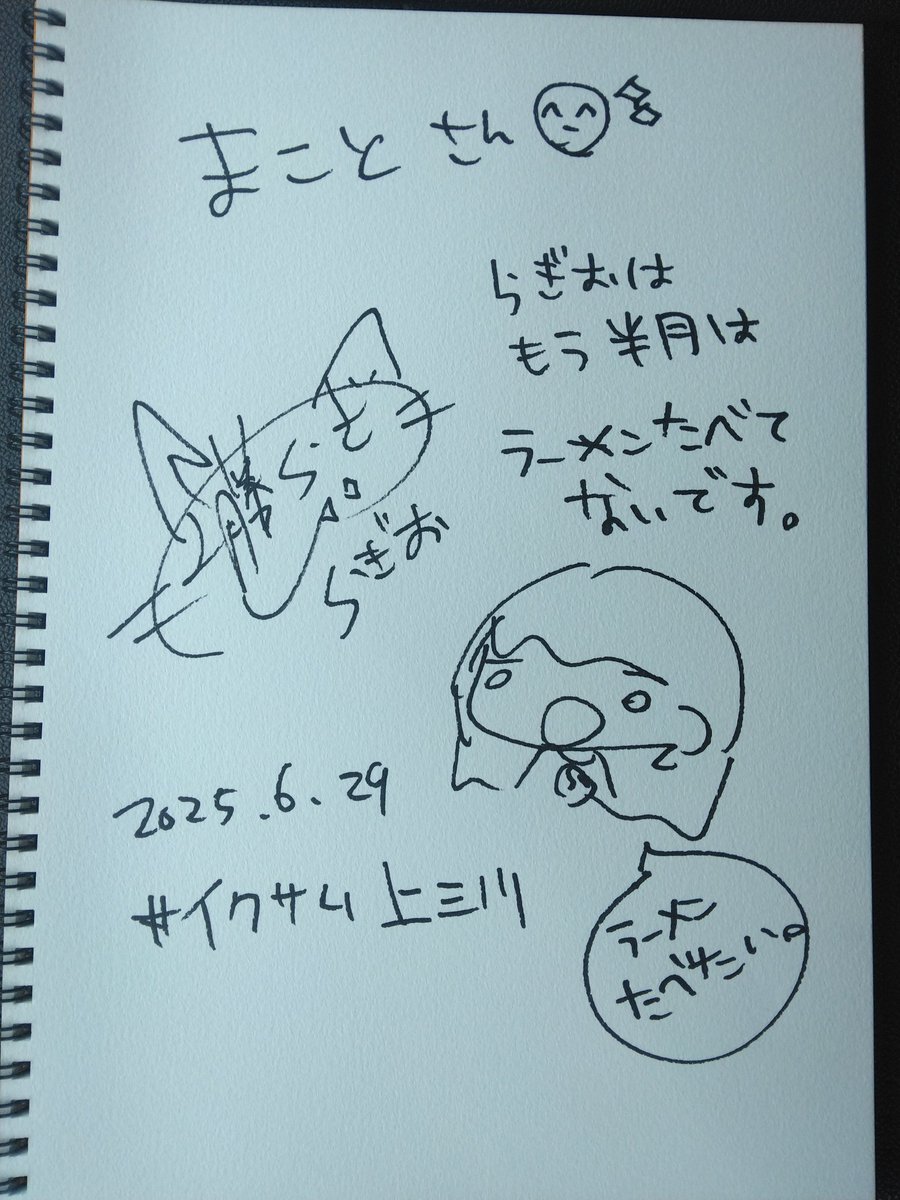 まことさん
らぎおは
もう半月は
ラーメンたべて
ないです。
らぎお
2025.6.29
#イクサム上三川
ラーメン
たべたい。